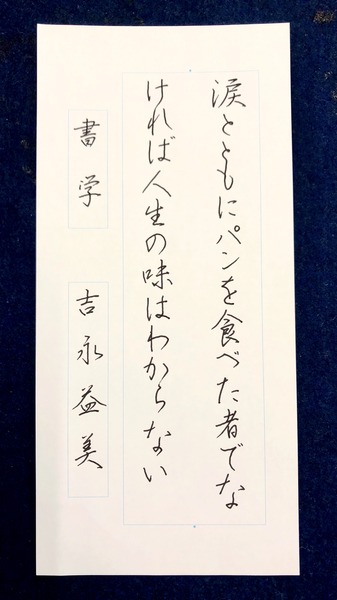 涙とともにパンを食べた者でな
ければ人生の味はわからない
書学 吉永益美